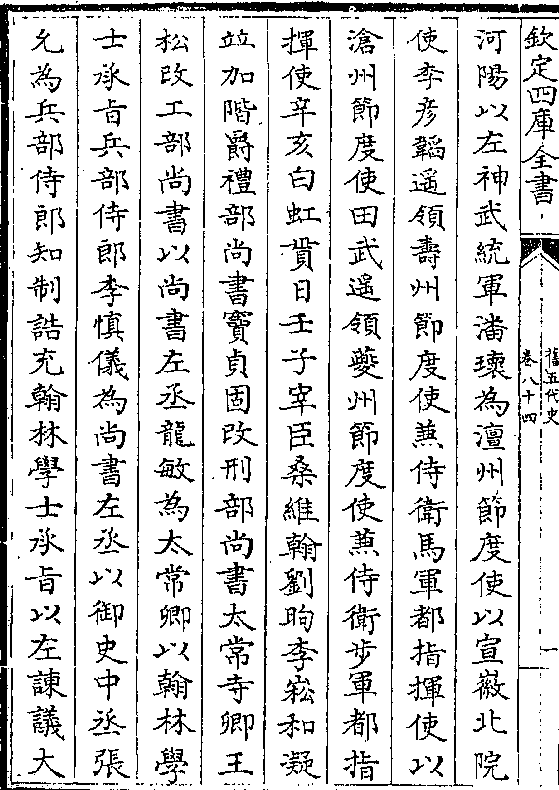 欽定四庫全書
舊五代史
卷八十四
一
河陽以左神武統軍潘環為澶州節度使以宣徽北院
使李彥韜遥領壽州節度使兼侍衛馬軍都指揮使以
滄州節度使田武遥領夔州節度使兼侍衛步軍都指
揮使辛亥白虹貫日壬子宰臣桑維翰劉昫李崧和凝
竝加階爵禮部尚書竇貞固改刑部尚書太常寺卿王
松改工部尚書以尚書左丞龍敏為太常卿以翰林學
士承㫖兵部侍郎李慎儀為尚書左丞以御史中丞張
允為兵部侍郎知制誥充翰林學士承㫖以左諫議大